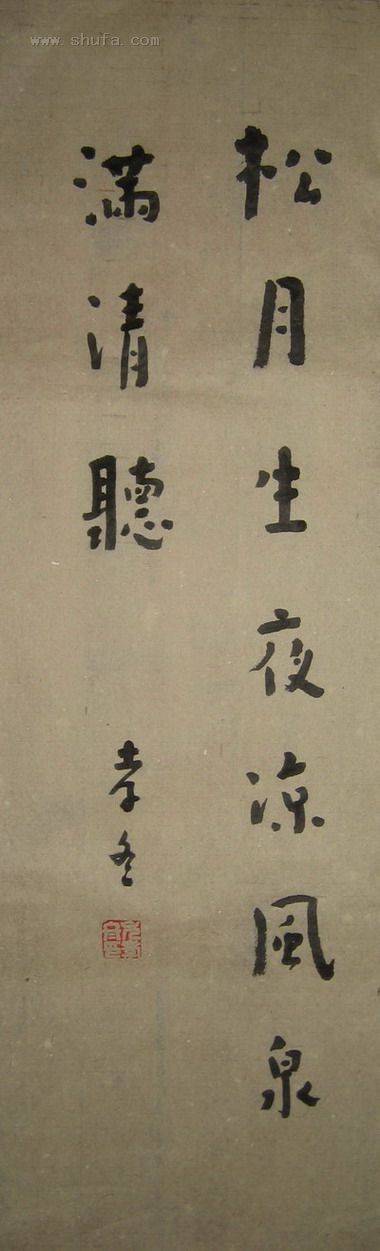 www.shufa.com
松月生夜凉風泉
满清聽